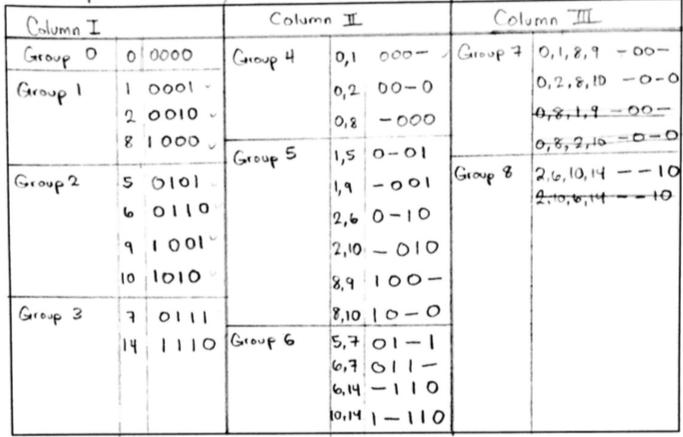 Column I
Group 0 0 0000
Group 1 1 0001
2 0010
8 1000
Group 2 5 0101
6 0110
9 1001
10 1010
Group 3 7 0111
14 1110
Column II
Group 4 0,1 000-
0,2 00-0
0,8 -000
Group 5 1,5 0-01
1,9 -001
2,6 0-10
2,10 -010
8,9 100-
8,10 10-0
Group 6 5,7 01-1
6,7 011-
6,14 -110
10,14 1-110
Column III
Group 7 0,1,8,9 -00-
0,2,8,10 -0-0
0,8,1,9 -00-
0,8,2,10 -0-0
Group 8 2,6,10,14 --10
2,10,6,14 --10